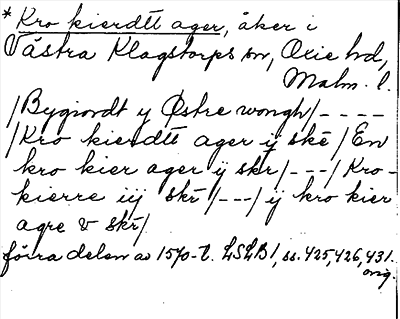 * Kro kierdtt ager, åker i
Västra Klagstorps sn, Oxie hd,
Malm. l.
/Bygiordt y Østre wongh/----
/Kro kierdtt ager ÿ skē/En
kro kier ager ÿ skr/---/Kro-
kierre iij skr̄/---/ÿ kro kier
agre v skr̄/
förra delen av 1570-t. LSLB1, ss. 425, 426, 431.
orig.